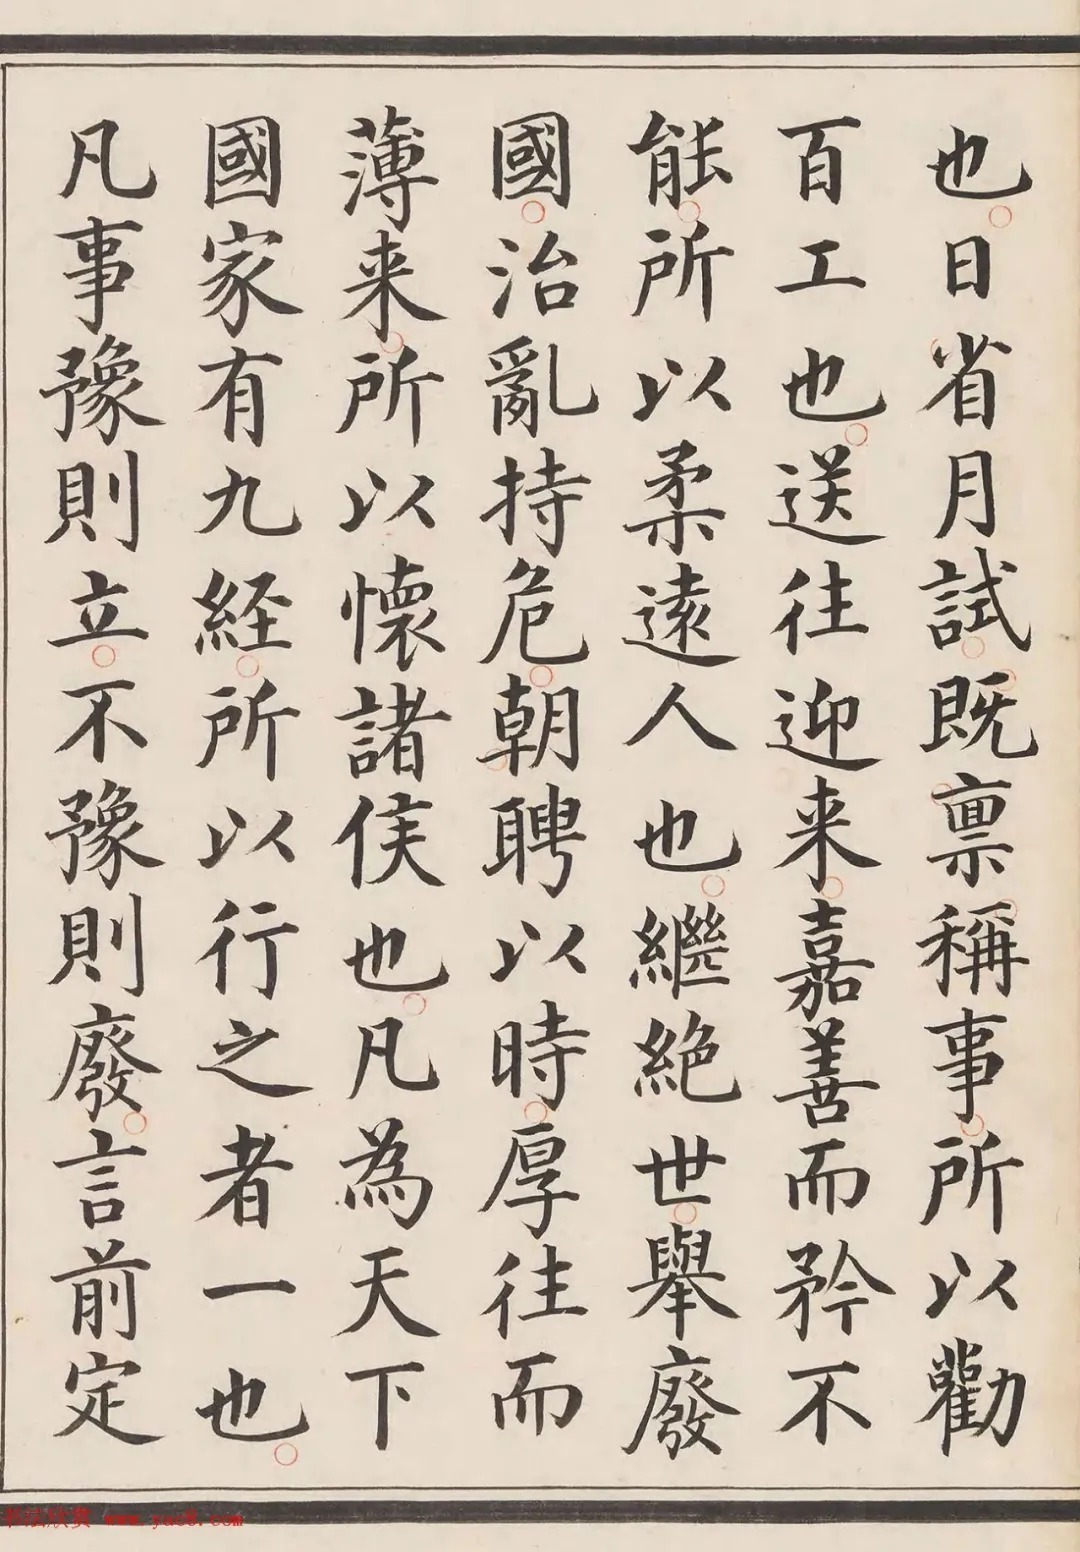 也日省月試既禀稱事所以勸
百工也送往迎来嘉善而矜不
能所以柔遠人也繼絶世舉廢
國治亂持危朝聘以時厚往而
薄来所以懷諸侯也凡為天下
國家有九経所以行之者一也
凡事豫則立不豫則廢言前定
书法欣赏 www.yac8.com